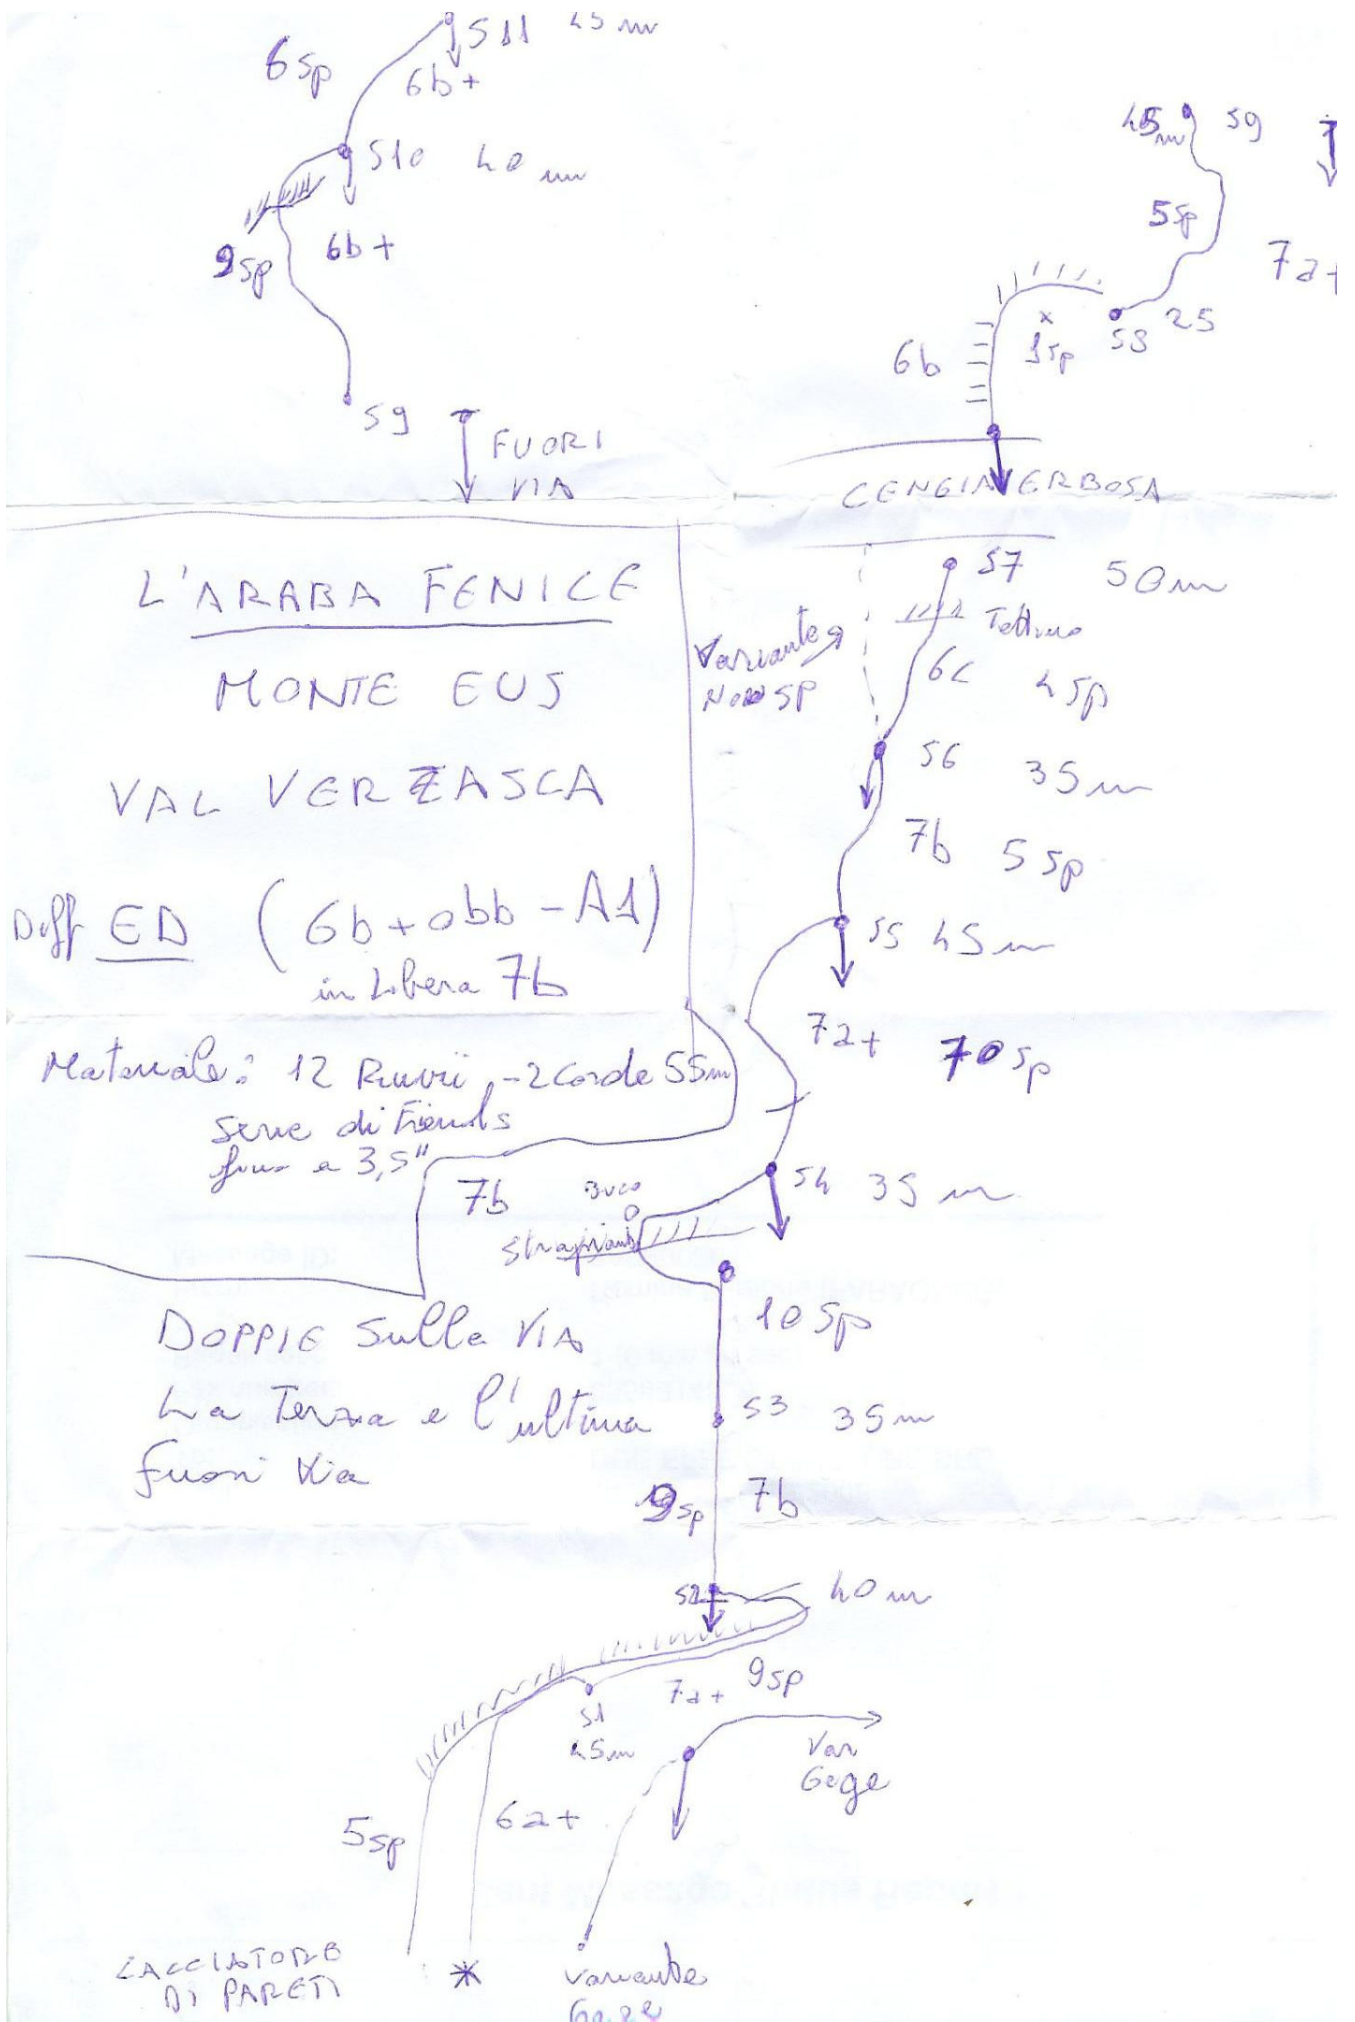 S11 45 m
6 sp
6b+
S10 40 m
9 sp
6b+
S9
FUORI
VIA
45 m S9
5 sp
7a+
S8 25
1 sp
6b
CENGIA ERBOSA
L'ARABA FENICE
MONTE EUS
VAL VERZASCA
Diff ED (6b+ obb - A1)
in Libera 7b
Materiale: 12 Rinvii, - 2 Corde 55m
Serie di Friends
fino a 3,5"
DOPPIE Sulla VIA
La Terza e l'ultima
fuori Via
S7 50m
Tettino
Variante
Non SP
6c 4 sp
S6 35m
7b 5 sp
S5 45m
7a+ 10 sp
S4 35 m
7b
Buco
10 Sp
S3 35m
9 sp 7b
S2 40 m
7a+ 9 sp
S1
45m
Var
Gege
5 sp
6a+
CACCIATORE
DI PARETI
Variante
Gege